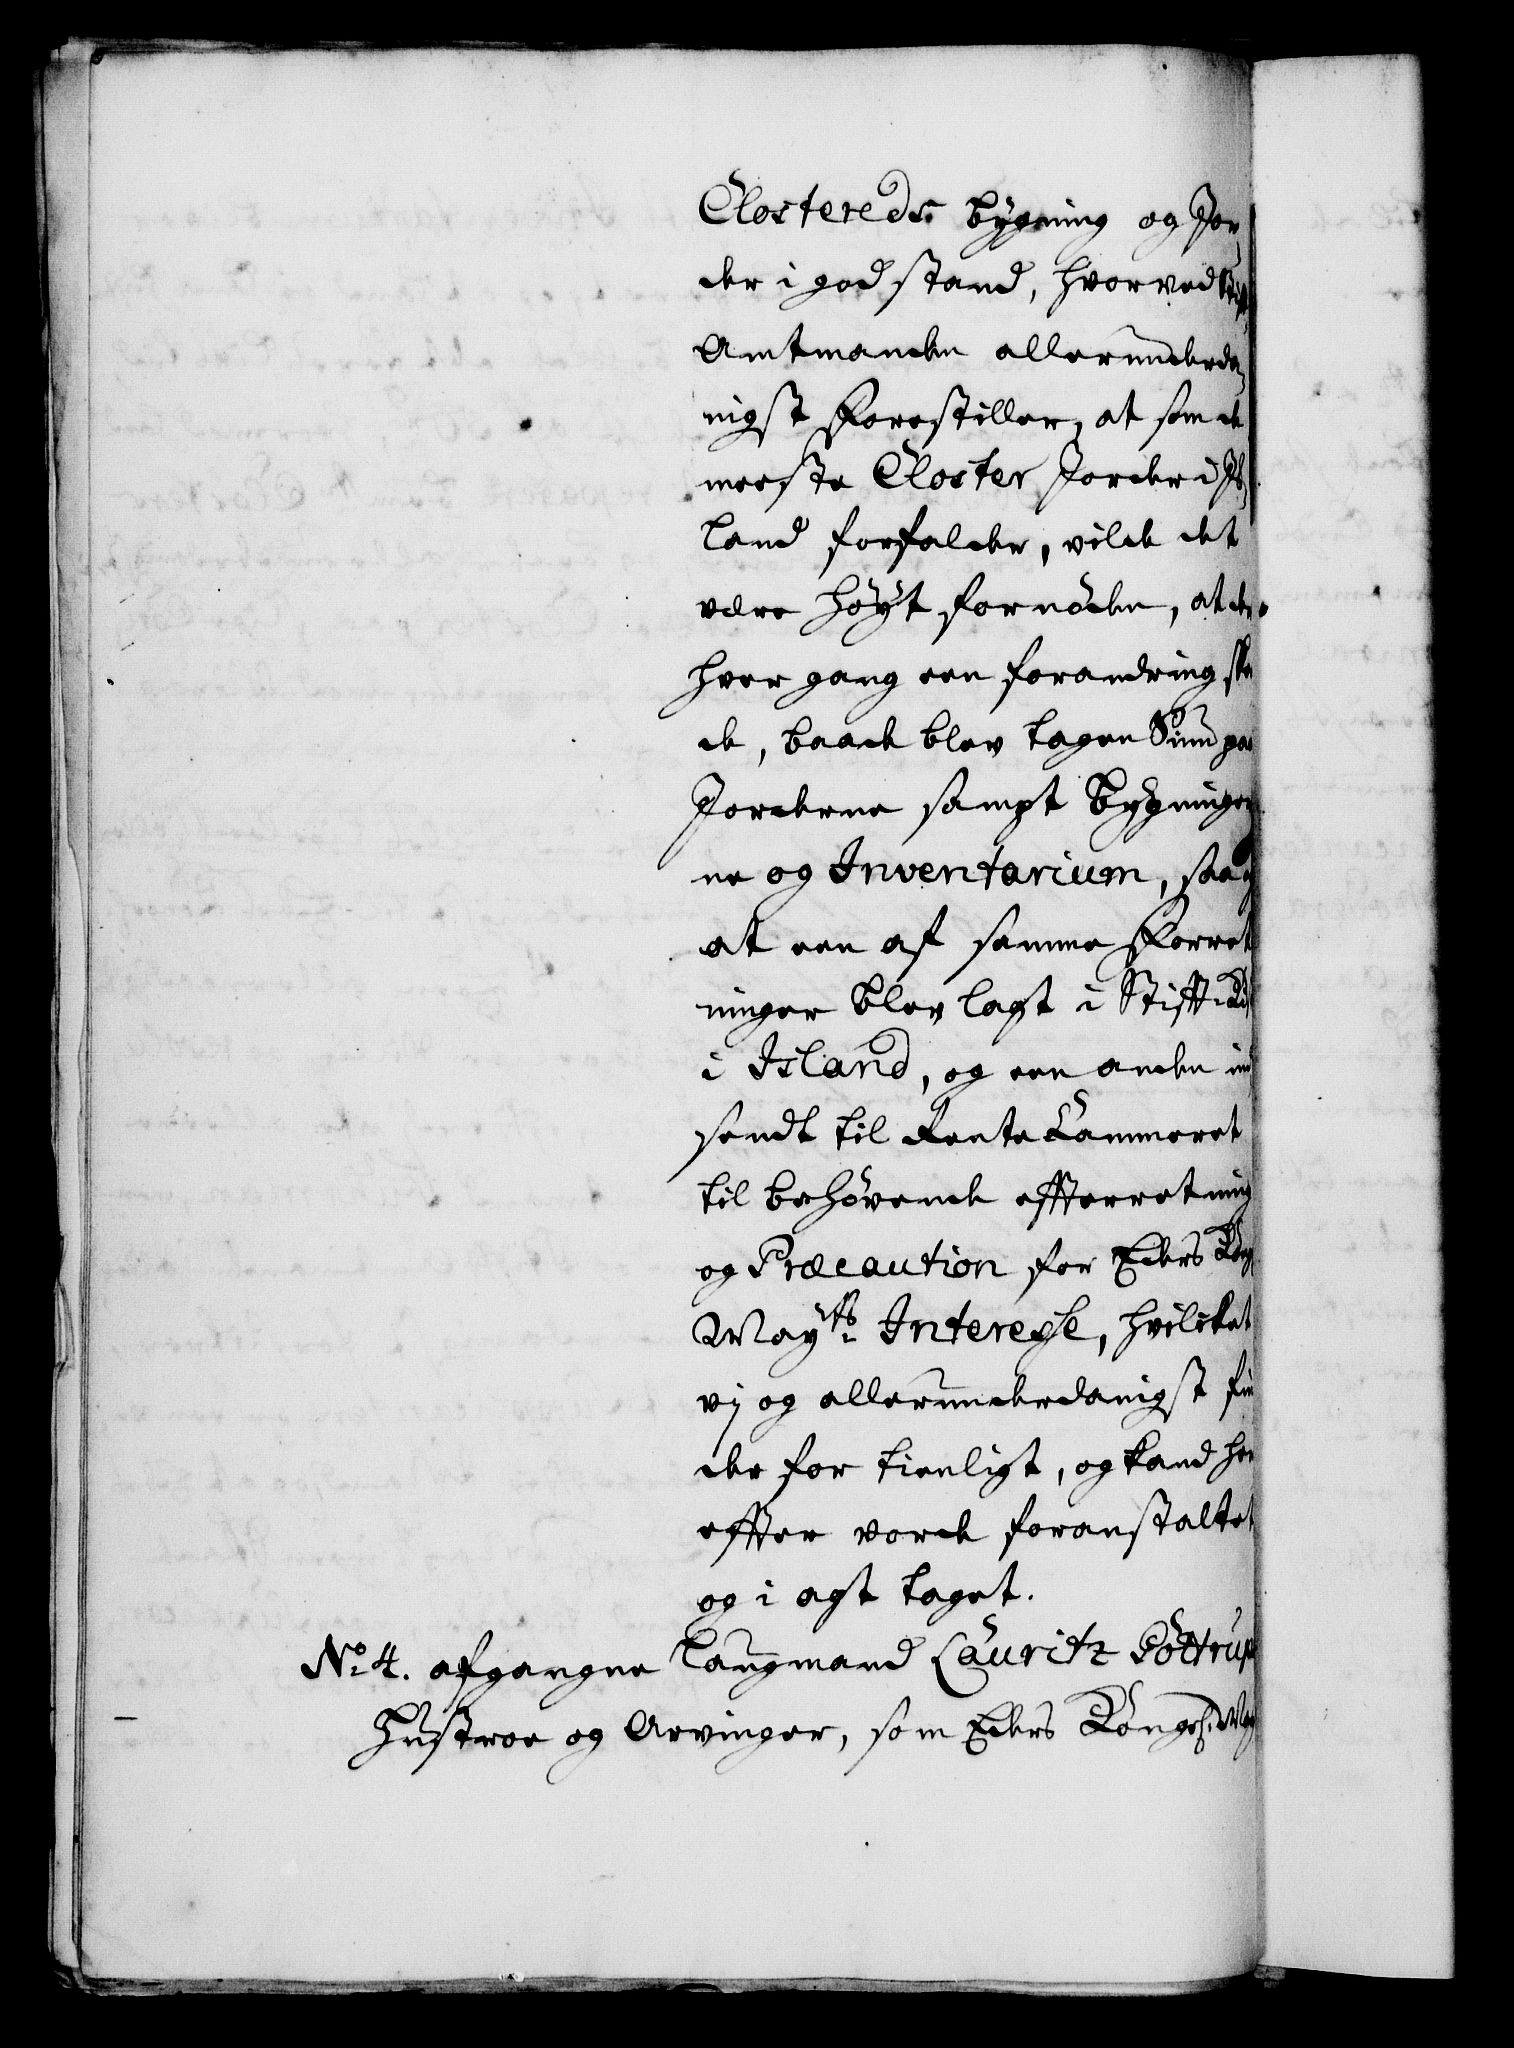 Closteredts bÿgning og Jor
der i god stand, hvorved Stift
Amtmanden allerunderda
nigst Forestiller, at som de
meeste Closter Jorder i Is
land forfalder, vilde det
være höÿt fornöden, at der
hver gang een forandring ske
de, baade blev tagen Siun paa
Jorderne sampt Bÿgninger
ne og Inventarium, saa
at een af samme Forret
ninger blev lagt i Stifft
i Island, og een anden ind
sendt til Rente Cammeret
til behövende effterretning
og Præcaution for Eders Kong
Mayts Interesse, hvilchet
vj og allerunderdanigst fin
der for tienligt, og kand her
effter vorde foranstaltet
og i agt taget.
No 4. afgangne Laugmand Lauritz Göttrups
Hustroe og Arvinger, som Eders Kongel. May